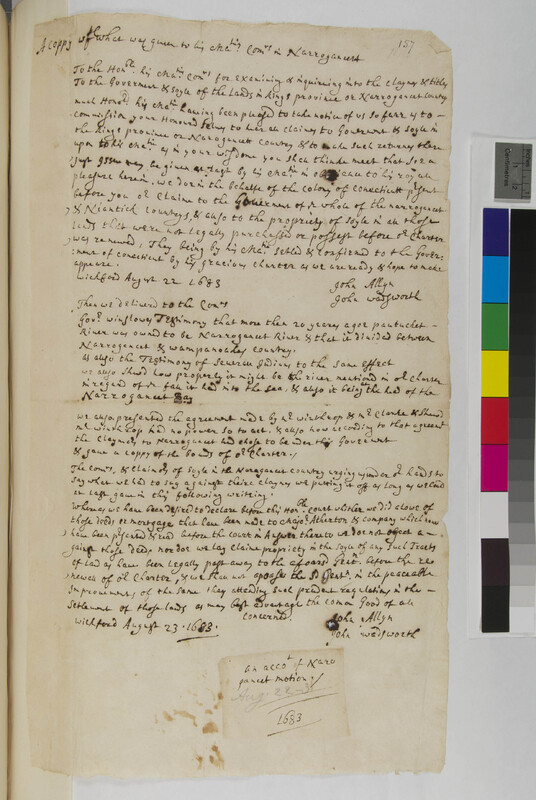 157
A coppy of what was given to his Matis Comrs in Narrogancet
To the Honble his Matis Comrs for Examining & inquireing into the Claymes & titles
To the Governmt & soyle of the Lands in Kings province or Narrogancet Country
much Honrd his Matie haveing been pleased to take notice of us so farr as to
commission your Honours to hear all claimes to Governmt & soyle in
the Kings province or Narogancet Country & to make such returnes there
upon to his Matie as in your wisdome you shall thinke meet that soe a
Just Issue may be given by his Matie in his royall
pleasure herin. we doe in the behalfe of the Colony of Conecticutt psent
before you or Claime to the Governmt of ye whole of the narrogancet
& Niantick Countrys, & also to the propriety of soyle in all those
lands that were not legally purchassd or possest before or Charter
was renewed, They being by his Matie setled & confirmed to the Gover-
nment of Conecticut by his gracious Charter as we are ready & hope to make
appeare.
Wickford August 22 1683
John Allyn
John Wadsworth
Then we delivered to the Comrs
Govr Winslows Testimony that more then 20 yeares agoe pautucket
River was owned to be Narrogancet River & that it divided between
Narrogancet & wampanoages Country.
as also the Testimony of Severall Indians to the same Effect
we also shewd how properly it might be the river mentioned in or Charter
in regard of ye fall it had into the sea. & also it being the head of the
Narrogancet Bay
we also presented the agreement made by mr winthrop & mr Clarke & shewd
mr winthrop had no power so to act. & also how according to that agreemt
the Claymrs to Narrogancet had chose to be under this Governmt
& gave a coppy of the bonds of or Charter.
The Comrs, & Claimrs of soyle in the Narogancet Country urging under or hands to
say what we had to say against theire claymes we putting it off as long as we could
at last gave in this following writeing.
Whereas we have been desired to declare before this Honble Court whither we did alowe of
those deeds or mortgage that have been made to Major Atherton & company which now
have been presented & read before the court in Answer thereto we doe not object a-
gainst those deeds, nor doe we lay claime propriety in the soyle of any such Tracts
of Land as have been legally past away to the aforesd Gent. before the re-
newall of or Charter, & we shall not opposse the sd Gentn in the peaceable
Improvement of the same They attending such prudent regulations in the
Setlement of those lands as may best advantage the comon Good of all
concerned.
Wickford August 23. 1683.
John Allyn
John Wadsworth
an accot of Naro
gancet motion
Aug. 22-3
1683